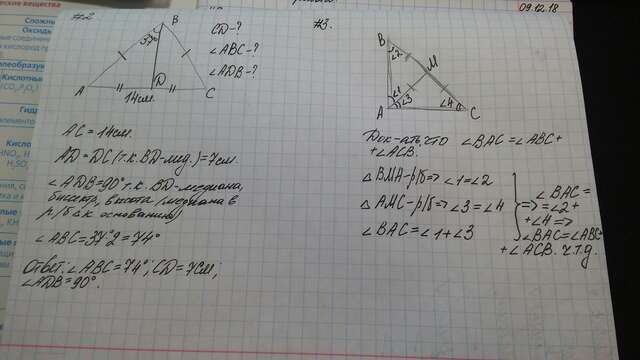 09.12.18
№2
B
37°
A
D
C
14см
CD-?
∠ABC-?
∠ADB-?
AC=14см.
AD=DC(т.к. BD-мед.)=7см
∠ADB=90° т.к. BD-медиана,
биссектр, высота (медиана в
р/б Δ к основанию)
∠ABC=37·2=74°
Ответ: ∠ABC=74°; CD=7см;
∠ADB=90°.
№3.
B
∠2
M
∠1
A
∠3
∠4
C
Док-ать, что ∠BAC=∠ABC+
+∠ACB.
ΔBMA-р/б=>∠1=∠2
ΔAMC-р/б=>∠3=∠4
∠BAC=∠1+∠3
=>
∠BAC=
=∠2+
+∠4=>
∠BAC=∠ABC+
+∠ACB. ч.т.д.
Кислотны
Кисло